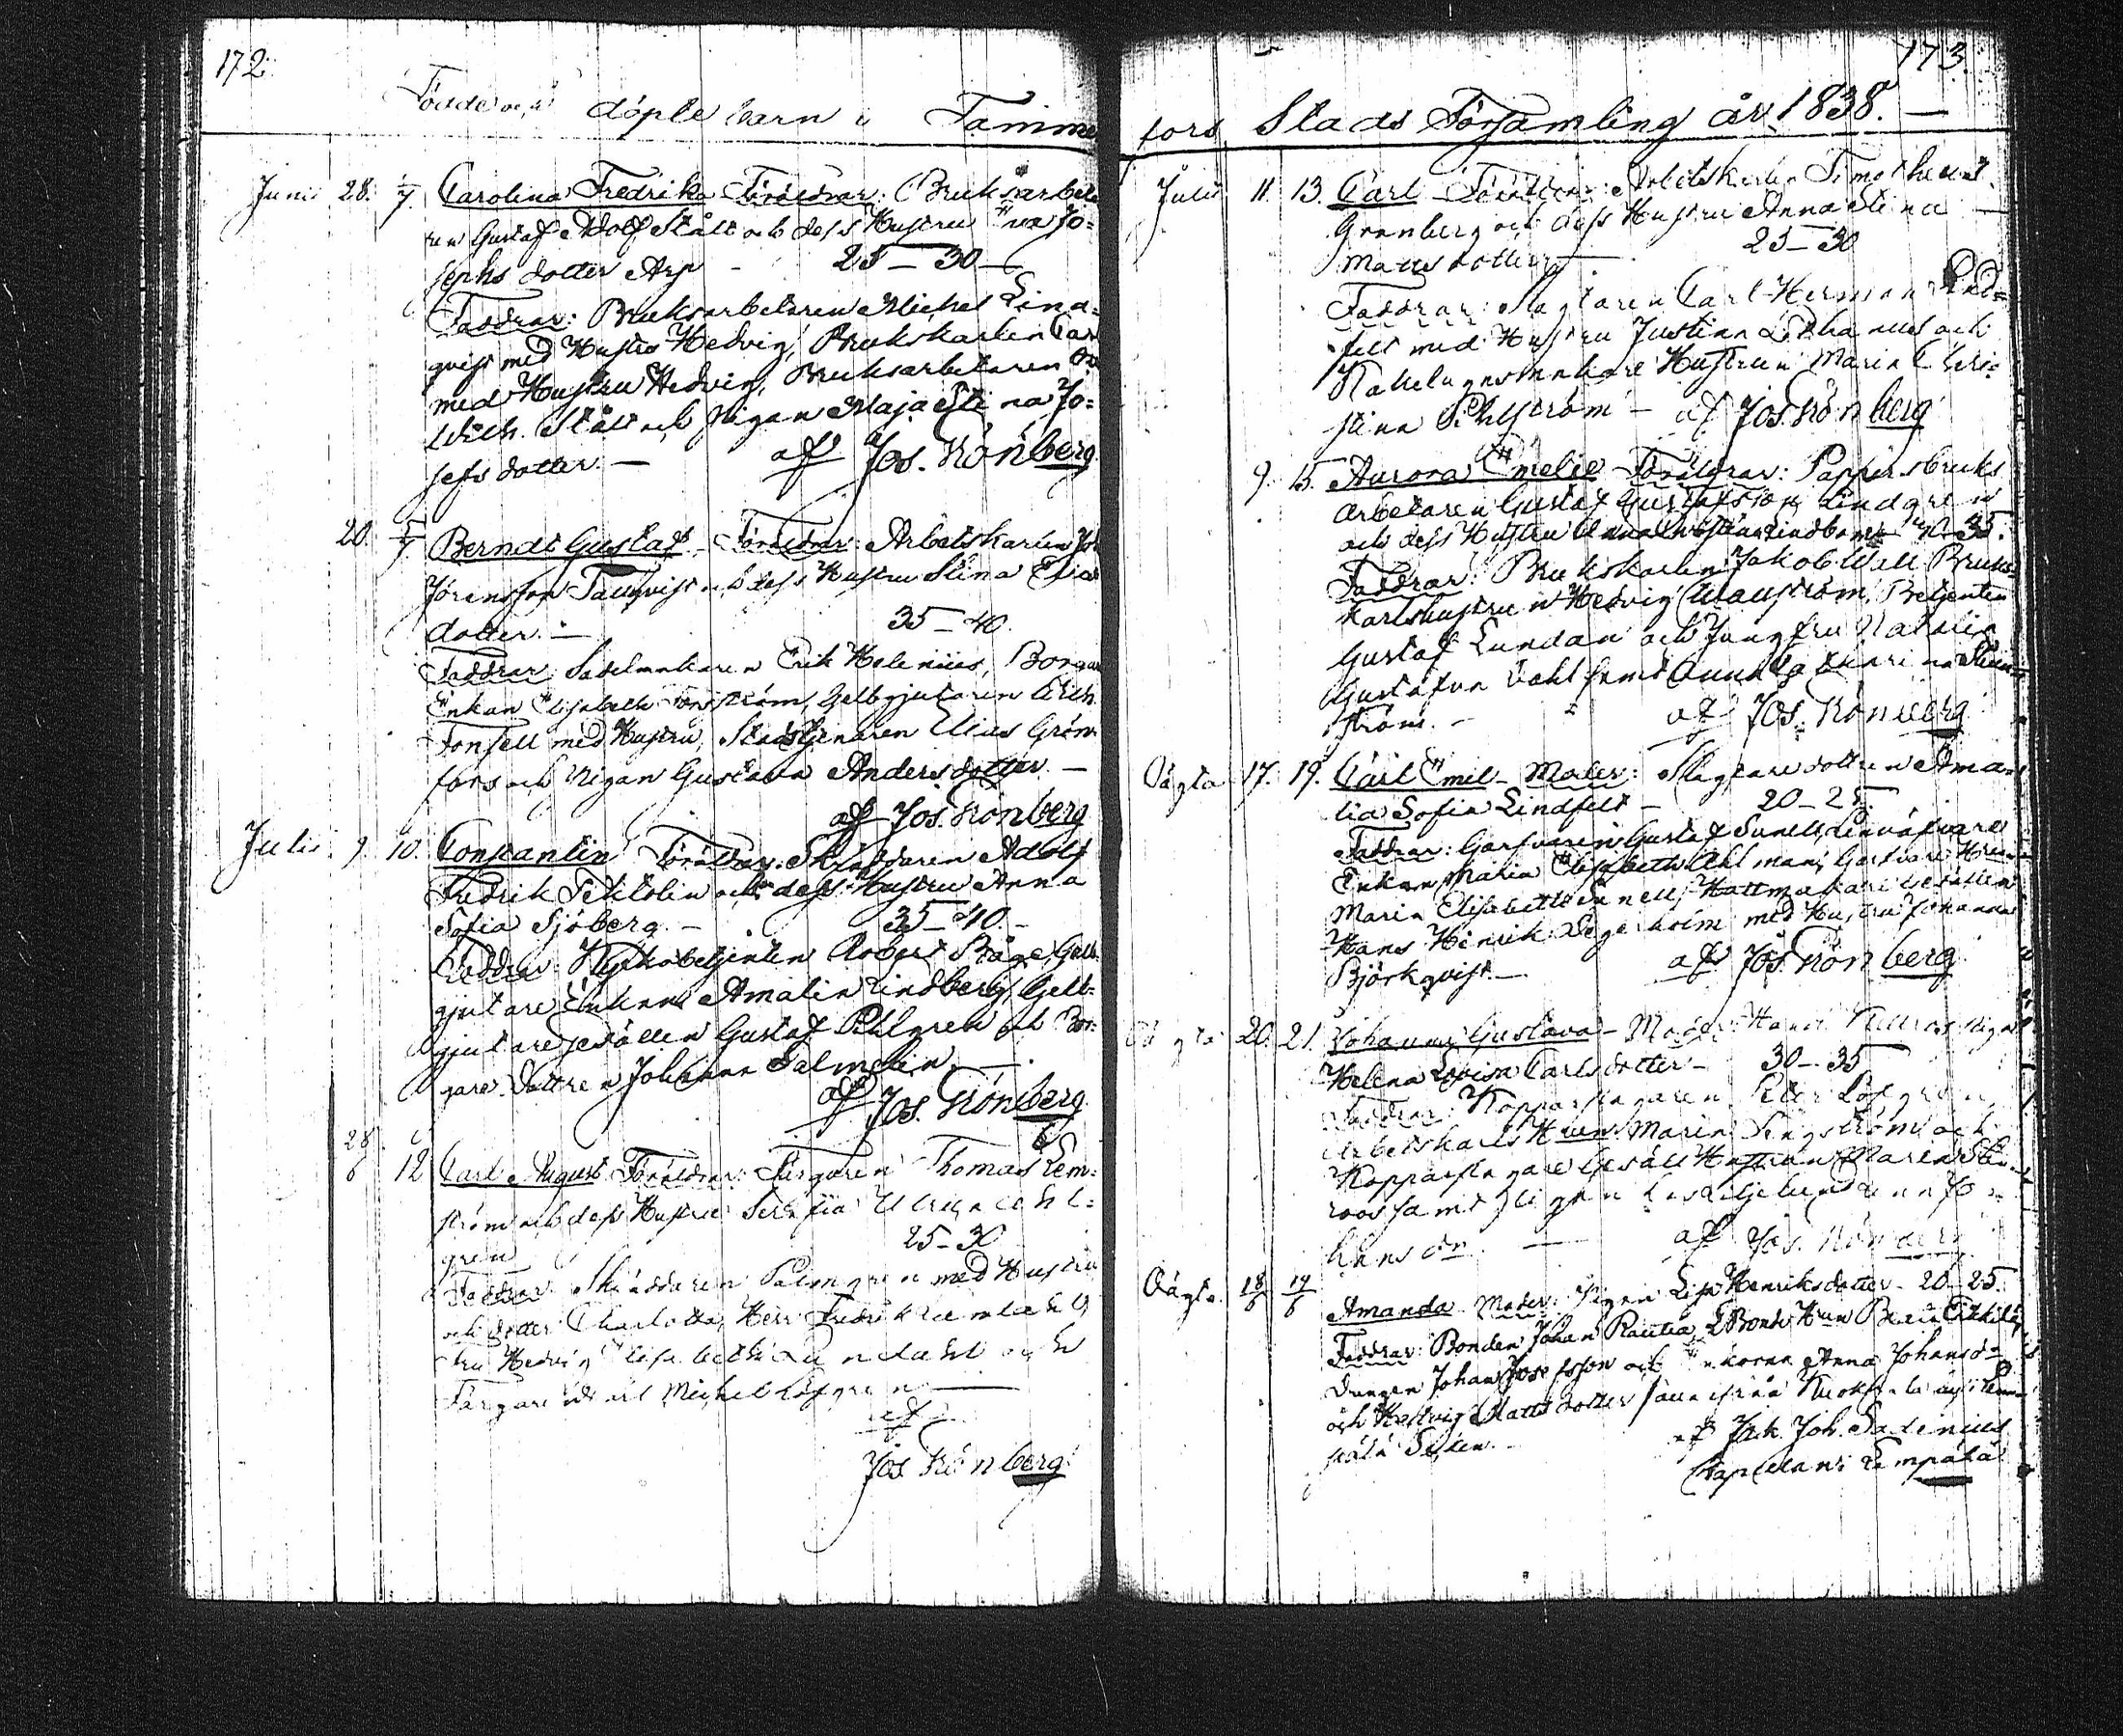 172.
Födde och döpte barn i Tamme
Junii 28. 1/7. Carolina Fredrika Föräldrar: Bruksarbeta
ren Gustaf Adolf Ståll och dess Hustru Eva Jo=
sephs dotter Arp - 25–30
Faddrar: Bruksarbetaren Michel Lind=
qvist med Hustru Hedvig, Brukskarlen Carl
med Hustru Hedvig, Bruksarbetaren
Wilh. Ståll och Pigan Maja Stina Jo=
sefs dotter. — af Jos. Grönberg
20. 5/7. Berndt Gustaf - Föräldrar: Arbetskarlen Joh
Jöransson Tallqvist och dess Hustru Stina Elias
dotter. — 35–40.
Faddrar: Sadelmakaren Erik Holenius, Borgare
Enkan Elisabeth Forsström, Gelbgjutaren Wilh.
Fonsell med Hustru, Stadstjenaren Elias Grön
fors och Pigan Gustava Andersdotter —
af Jos. Grönberg
Julii. 9. 10. Constantin Föräldrar: Skräddaren Adolf
Fredrik Sektolin och dess Hustru Anna
Sofia Sjöberg. - 35–40. -
Faddrar: Kyrkobetjenten Robert Båge, Gelb
gjutare Enkan Amalia Lindberg, Gelb=
gjutare Gesällen Gustaf Pihlgren och Bor=
gare Dottren Johanna Salmelin. —
af Jos. Grönberg
28/6 12 Carl August Föräldrar: Färgaren Thomas Lem=
ström och dess Hustru Serafia Ulrica Ahl=
gren 25–30
Faddrar: Skräddaren Palmgren med Hustru
och dotter Charlotta, Herr Fredrik
Fru Hedvig Elisabeth Lundahl och
Färgare Michel Löfgren —
af
Jos Grönberg
173.
fors Stads Församling år 1838. —
Julii 11. 13. Carl Föräldrar: Arbetskarlen Timotheus
Granberg och dess Hustru Anna Stina
Mattsdotter — 25–30
Faddrar: Slagtaren Carl Herman Lind=
felt med Hustru Justina Lithanus och
Kakelugnsmakare Hustrun Maria Chri=
stina Pihlström – af Jos. Grönberg
9. 15. Aurora Emelie Föräldrar: Pappersbruks
arbetaren Gustaf Gustafsson Lindgren
och dess Hustru Anna Christina Lindbom 30–35.
Faddrar: Brukskarlen Jakob Wall Bruks=
karlshustrun Hedvig Wallström, Betjenten
Gustaf Lundan och Jungfru Natalia
Gustafva Dahl samt Anna Catharina
ström. - af Jos. Grönberg
Oägta 17. 19. Carl Emil - Moder: Slagtaredottren Ama=
lia Sofia Lindfelt – 20–25.
Faddrar: Garfvaren Gustaf Sunell, Linväfvare
Enkan Maria Elisabeth Ahlman, Garfvare Hrun
Maria Elisabeth Sunell, Hattmakare Gesällen
Hans Henrik Segerholm med Hustru Johanna
Björkqvist. — af Jos. Grönberg
Oägta 20. 21. Johanna Gustava – Moder: Pigan
Helena Lovisa Carlsdotter – 30–35
Faddrar: Kopparslagaren Peter Löfgren
Arbetskarls Hrun Maria Engström och
Kopparslagare Gesäll Hustrun Maria Sten
roos samt Pigan Jo=
hans dr. — af Jos. Grönberg
Oägta. 18/6 19/6 Amanda - Moder: Pigan Lisa Henriksdotter - 20–25.
Faddrar: Bonden Johan Rautia, Bonde Hrun
Drengen Johan Josefsson och Anna Johansdr
och Hedvig Mattsdotter från Lem=
pälä Socken. - af Jak. Joh. Sadenius
Capellan i Lempälä